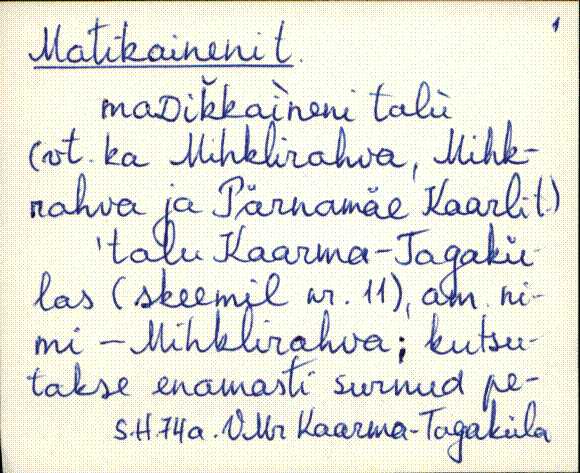 1
Matikaineni t.
maDik̆kaìneni talù
(vt. ka Mihklirahva, Mihk-
rahva ja Pärnamäe Kaarlit)
'talu Kaarma-Tagakü-
las (skeemil nr. 11), am. ni-
mi – Mihklirahva; kutsu-
takse enamasti surnud pe-
S.H.74a. V.Mr Kaarma-Tagaküla